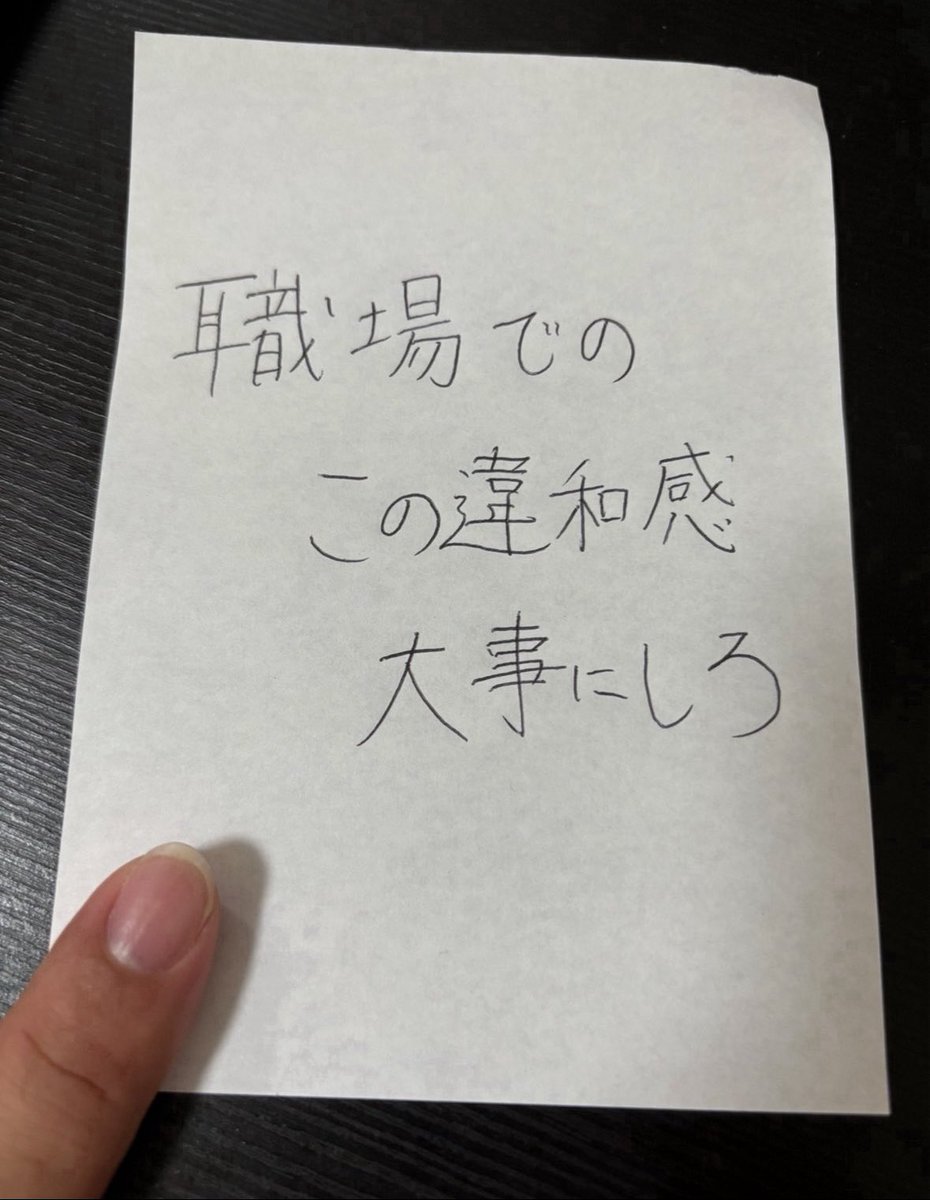 職場での
この違和感
大事にしろ